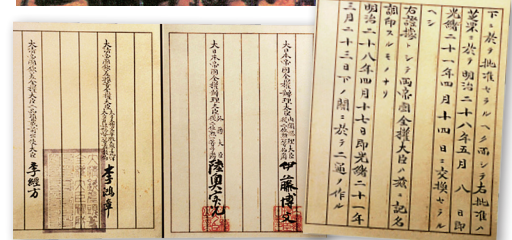 下ニ於テ批准セラルヘク而シテ右批准ハ
芝罘ニ於テ明治二十八年五月八日即
光緒二十一年四月十四日ニ交換セラル
ヘシ
右證據トシテ兩帝國全權大臣ハ茲ニ記名
調印スルモノナリ
明治二十八年四月十七日即光緒二十一年
三月二十三日下ノ關ニ於テ二通ヲ作ル
大日本帝國全權辨理大臣 伊藤博文
大日本帝國全權辨理大臣 陸奧宗光
大清帝國欽差頭等全權大臣 李鴻章
大清帝國欽差全權大臣二品頂戴前出使大臣 李經方